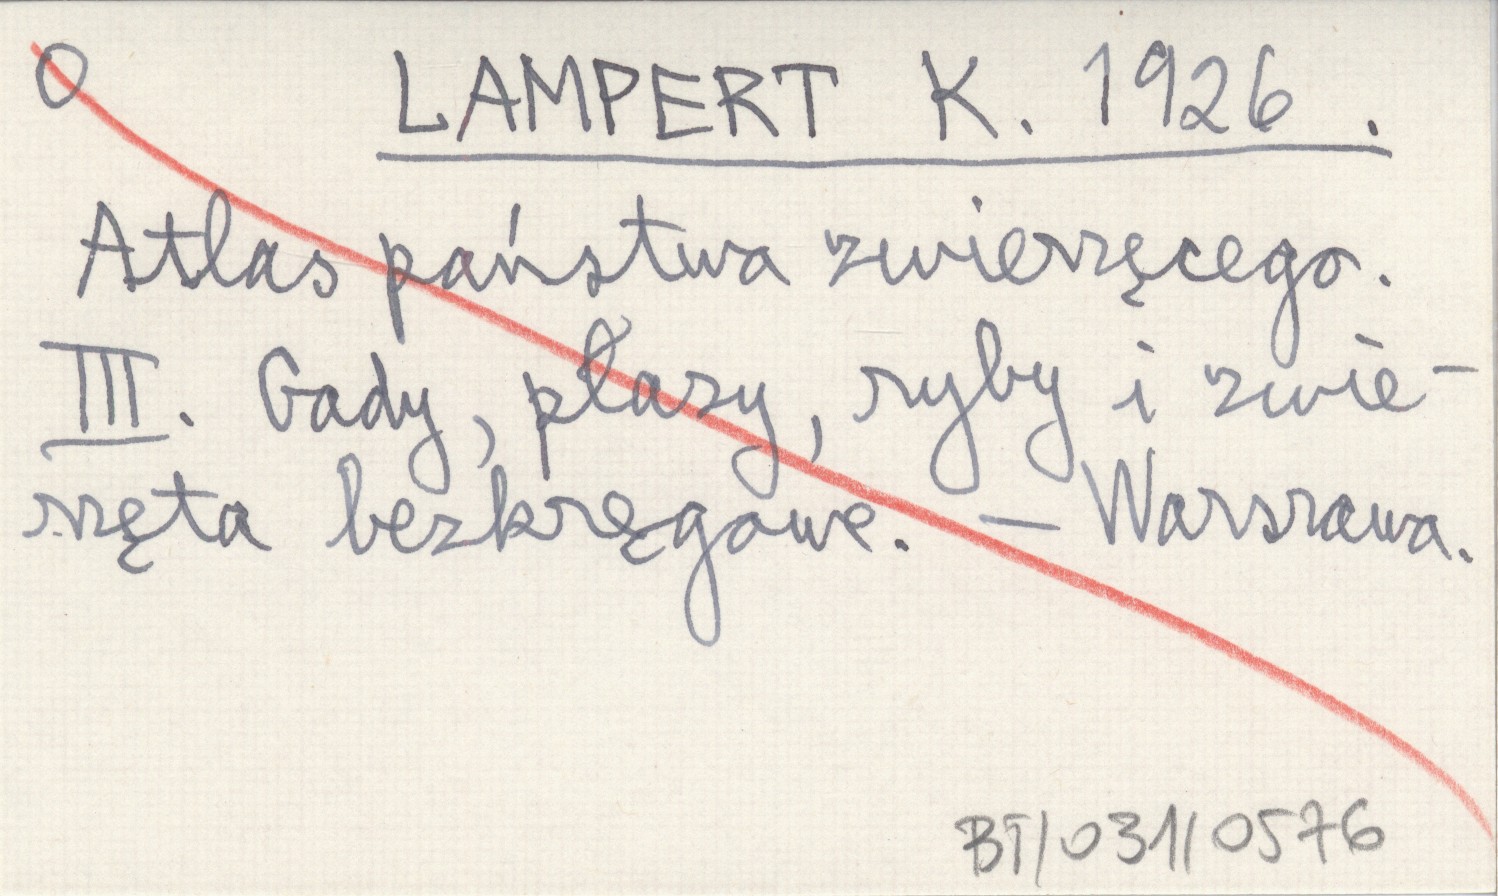 O LAMPERT K. 1926.
Atlas państwa zwierzęcego.
III. Gady, płazy, ryby i zwie-
rzęta bezkręgowe. – Warszawa.
BT/031/0576